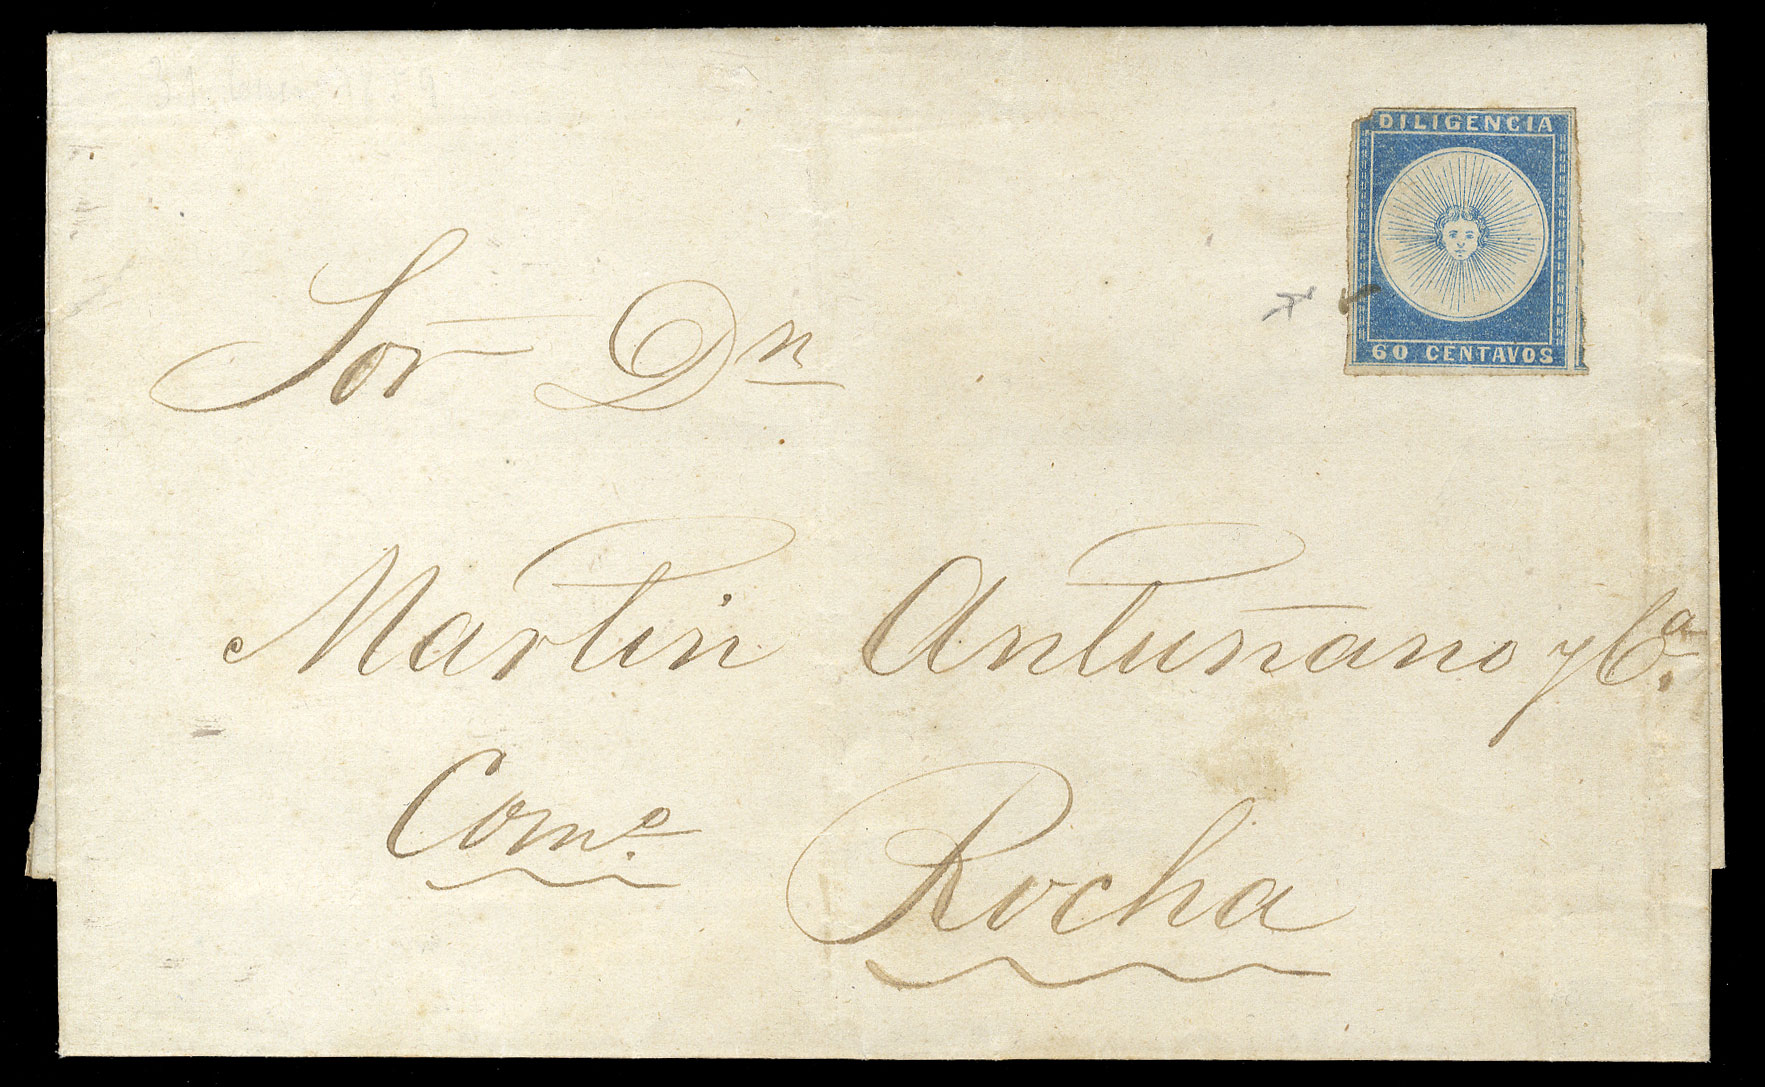 DILIGENCIA
60 CENTAVOS
Sor Dn
Martin Antuñano y Ca.
Come.
Rocha